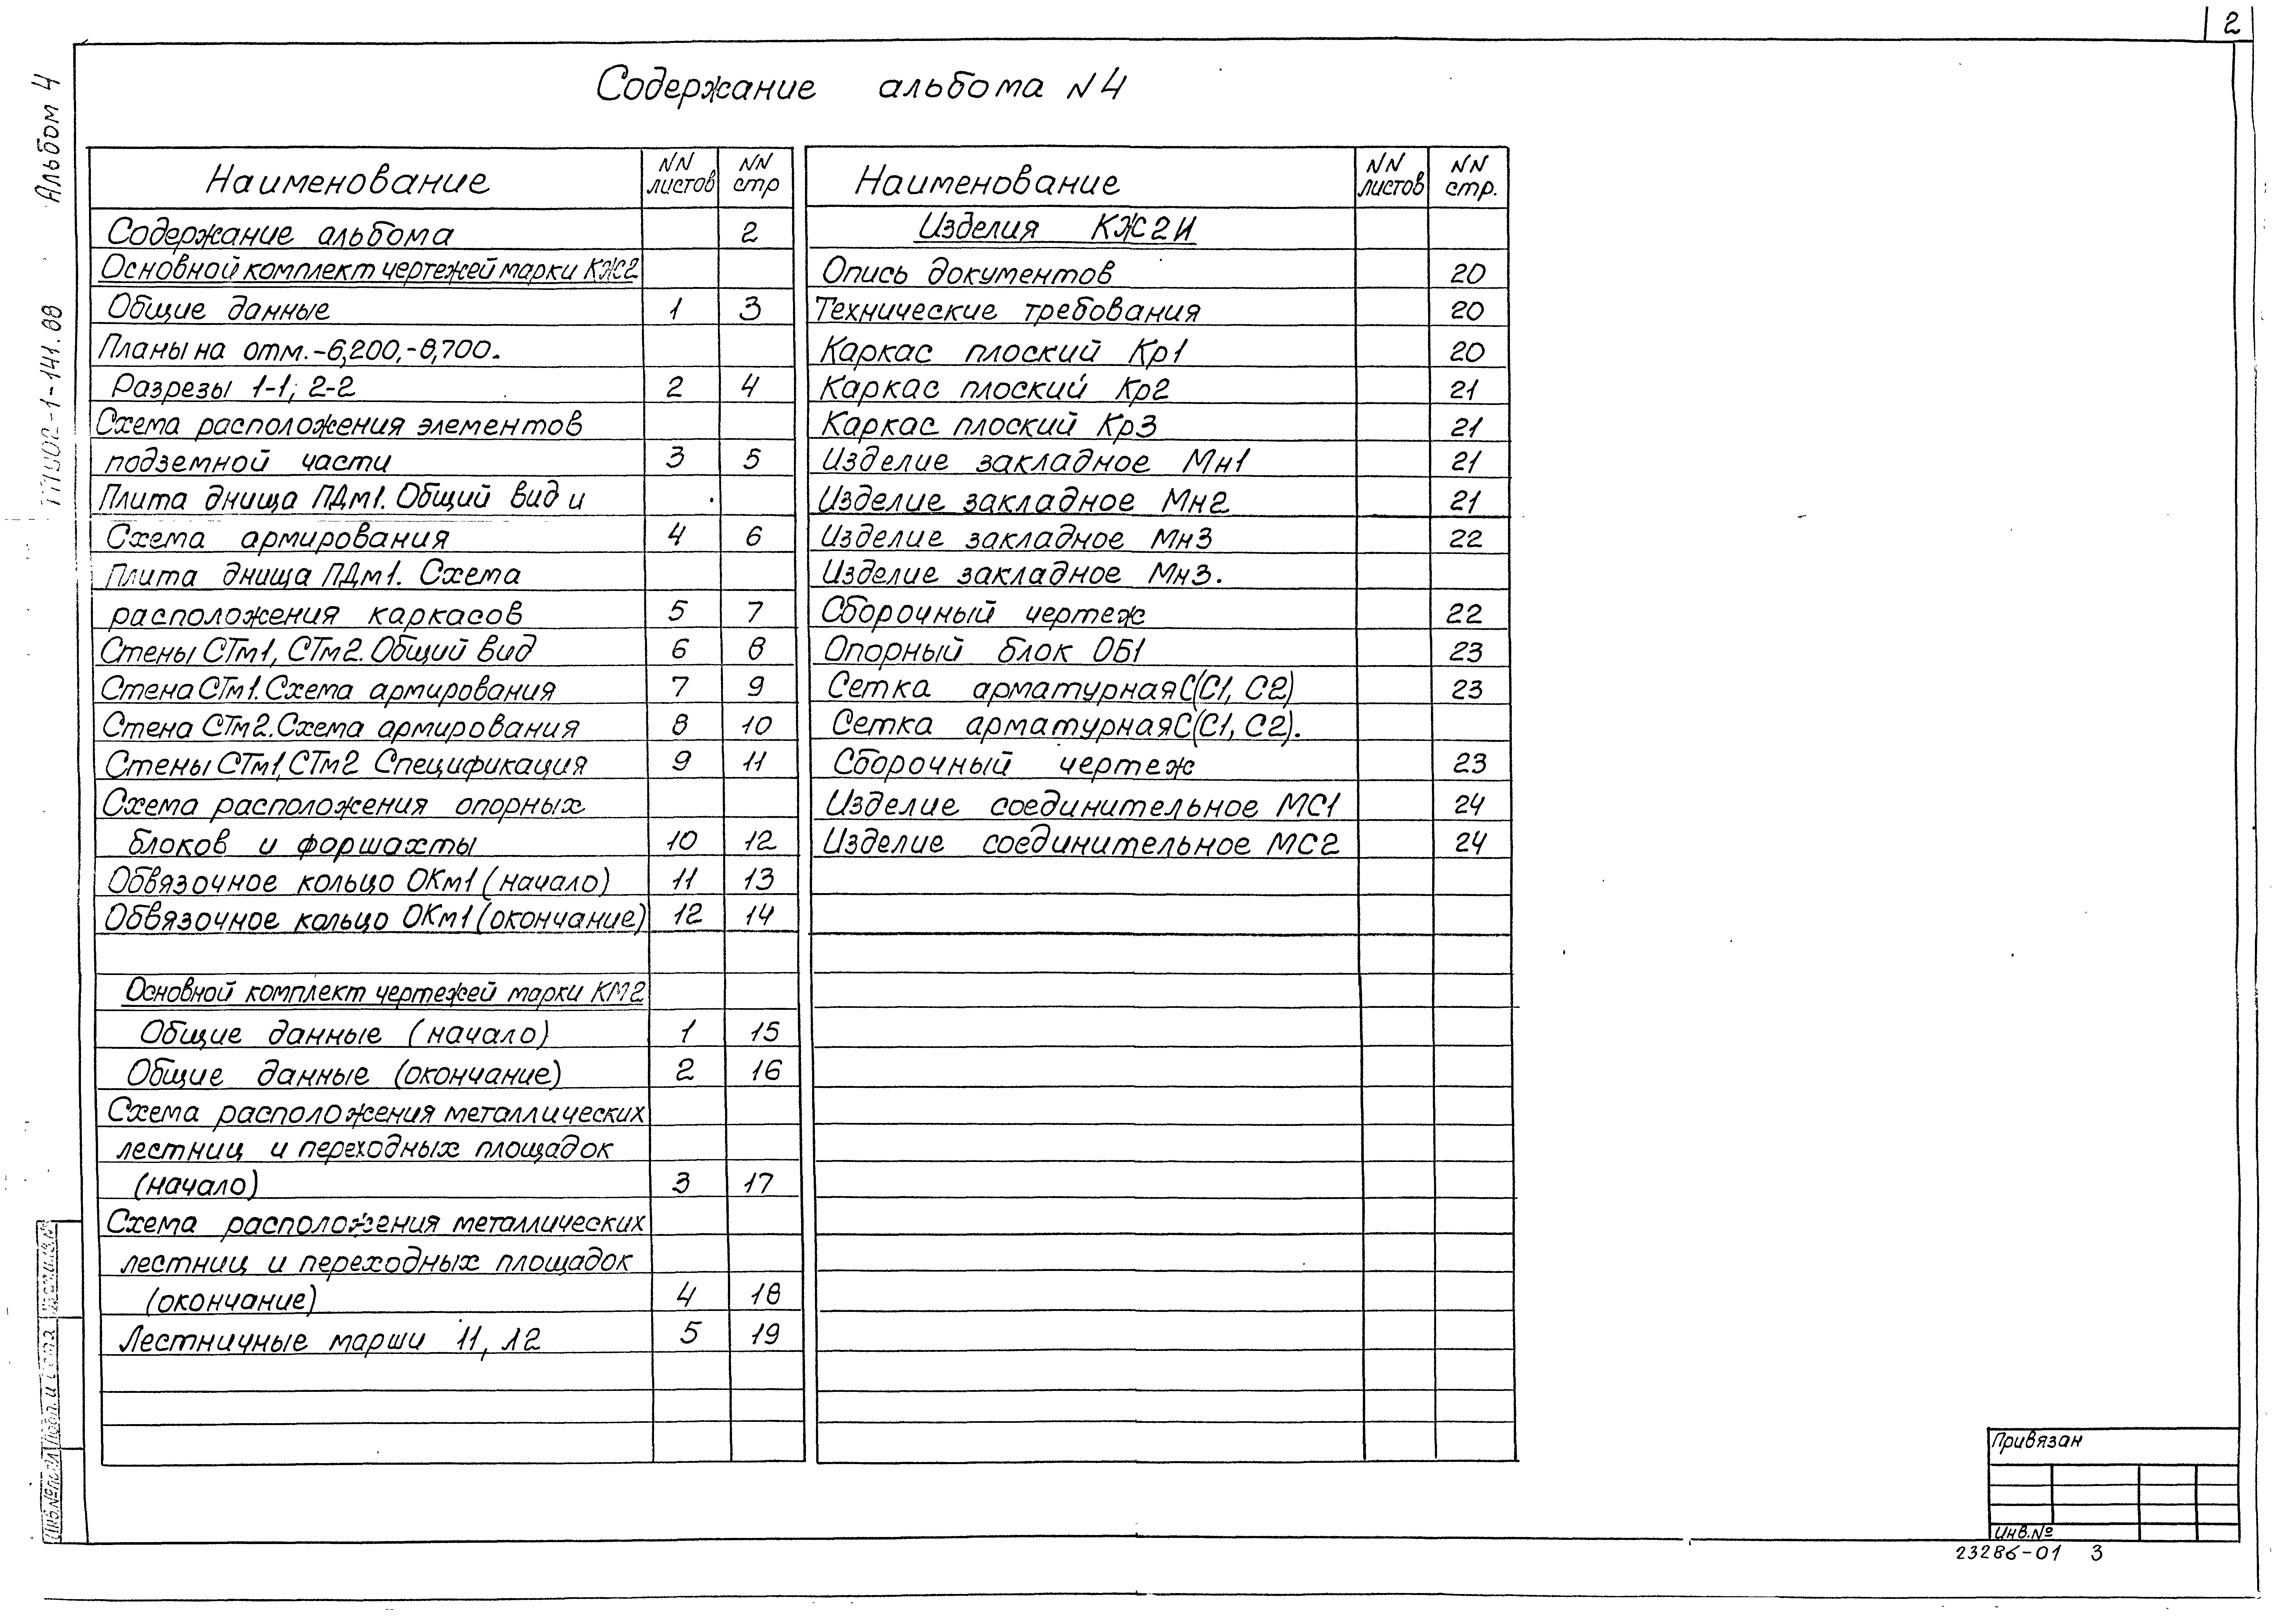 2
Содержание альбома N4
Альбом 4
Наименование NN листов NN стр
Содержание альбома 2
Основной комплект чертежей марки КЖ2
Общие данные 1 3
Планы на отм.-6,200,-8,700.
Разрезы 1-1; 2-2 2 4
Схема расположения элементов
подземной части 3 5
Плита днища ПДм1. Общий вид и
Схема армирования 4 6
Плита днища ПДм1. Схема
расположения каркасов 5 7
Стены СТм1, СТм2. Общий вид 6 8
Стена СТм1. Схема армирования 7 9
Стена СТм2. Схема армирования 8 10
Стены СТм1, СТм2 Спецификация 9 11
Схема расположения опорных
блоков и форшахты 10 12
Обвязочное кольцо ОКм1 (начало) 11 13
Обвязочное кольцо ОКм1 (окончание) 12 14
Основной комплект чертежей марки КМ2
Общие данные (начало) 1 15
Общие данные (окончание) 2 16
Схема расположения металлических
лестниц и переходных площадок
(начало) 3 17
Схема расположения металлических
лестниц и переходных площадок
(окончание) 4 18
Лестничные марши Л1, Л2 5 19
Наименование NN листов NN стр.
Изделия КЖ2И
Опись документов 20
Технические требования 20
Каркас плоский Кр1 20
Каркас плоский Кр2 21
Каркас плоский Кр3 21
Изделие закладное Мн1 21
Изделие закладное Мн2 21
Изделие закладное Мн3 22
Изделие закладное Мн3.
Сборочный чертеж 22
Опорный блок ОБ1 23
Сетка арматурная С(С1, С2) 23
Сетка арматурная С(С1, С2).
Сборочный чертеж 23
Изделие соединительное МС1 24
Изделие соединительное МС2 24
Привязан
Инв.№
23286-01 3